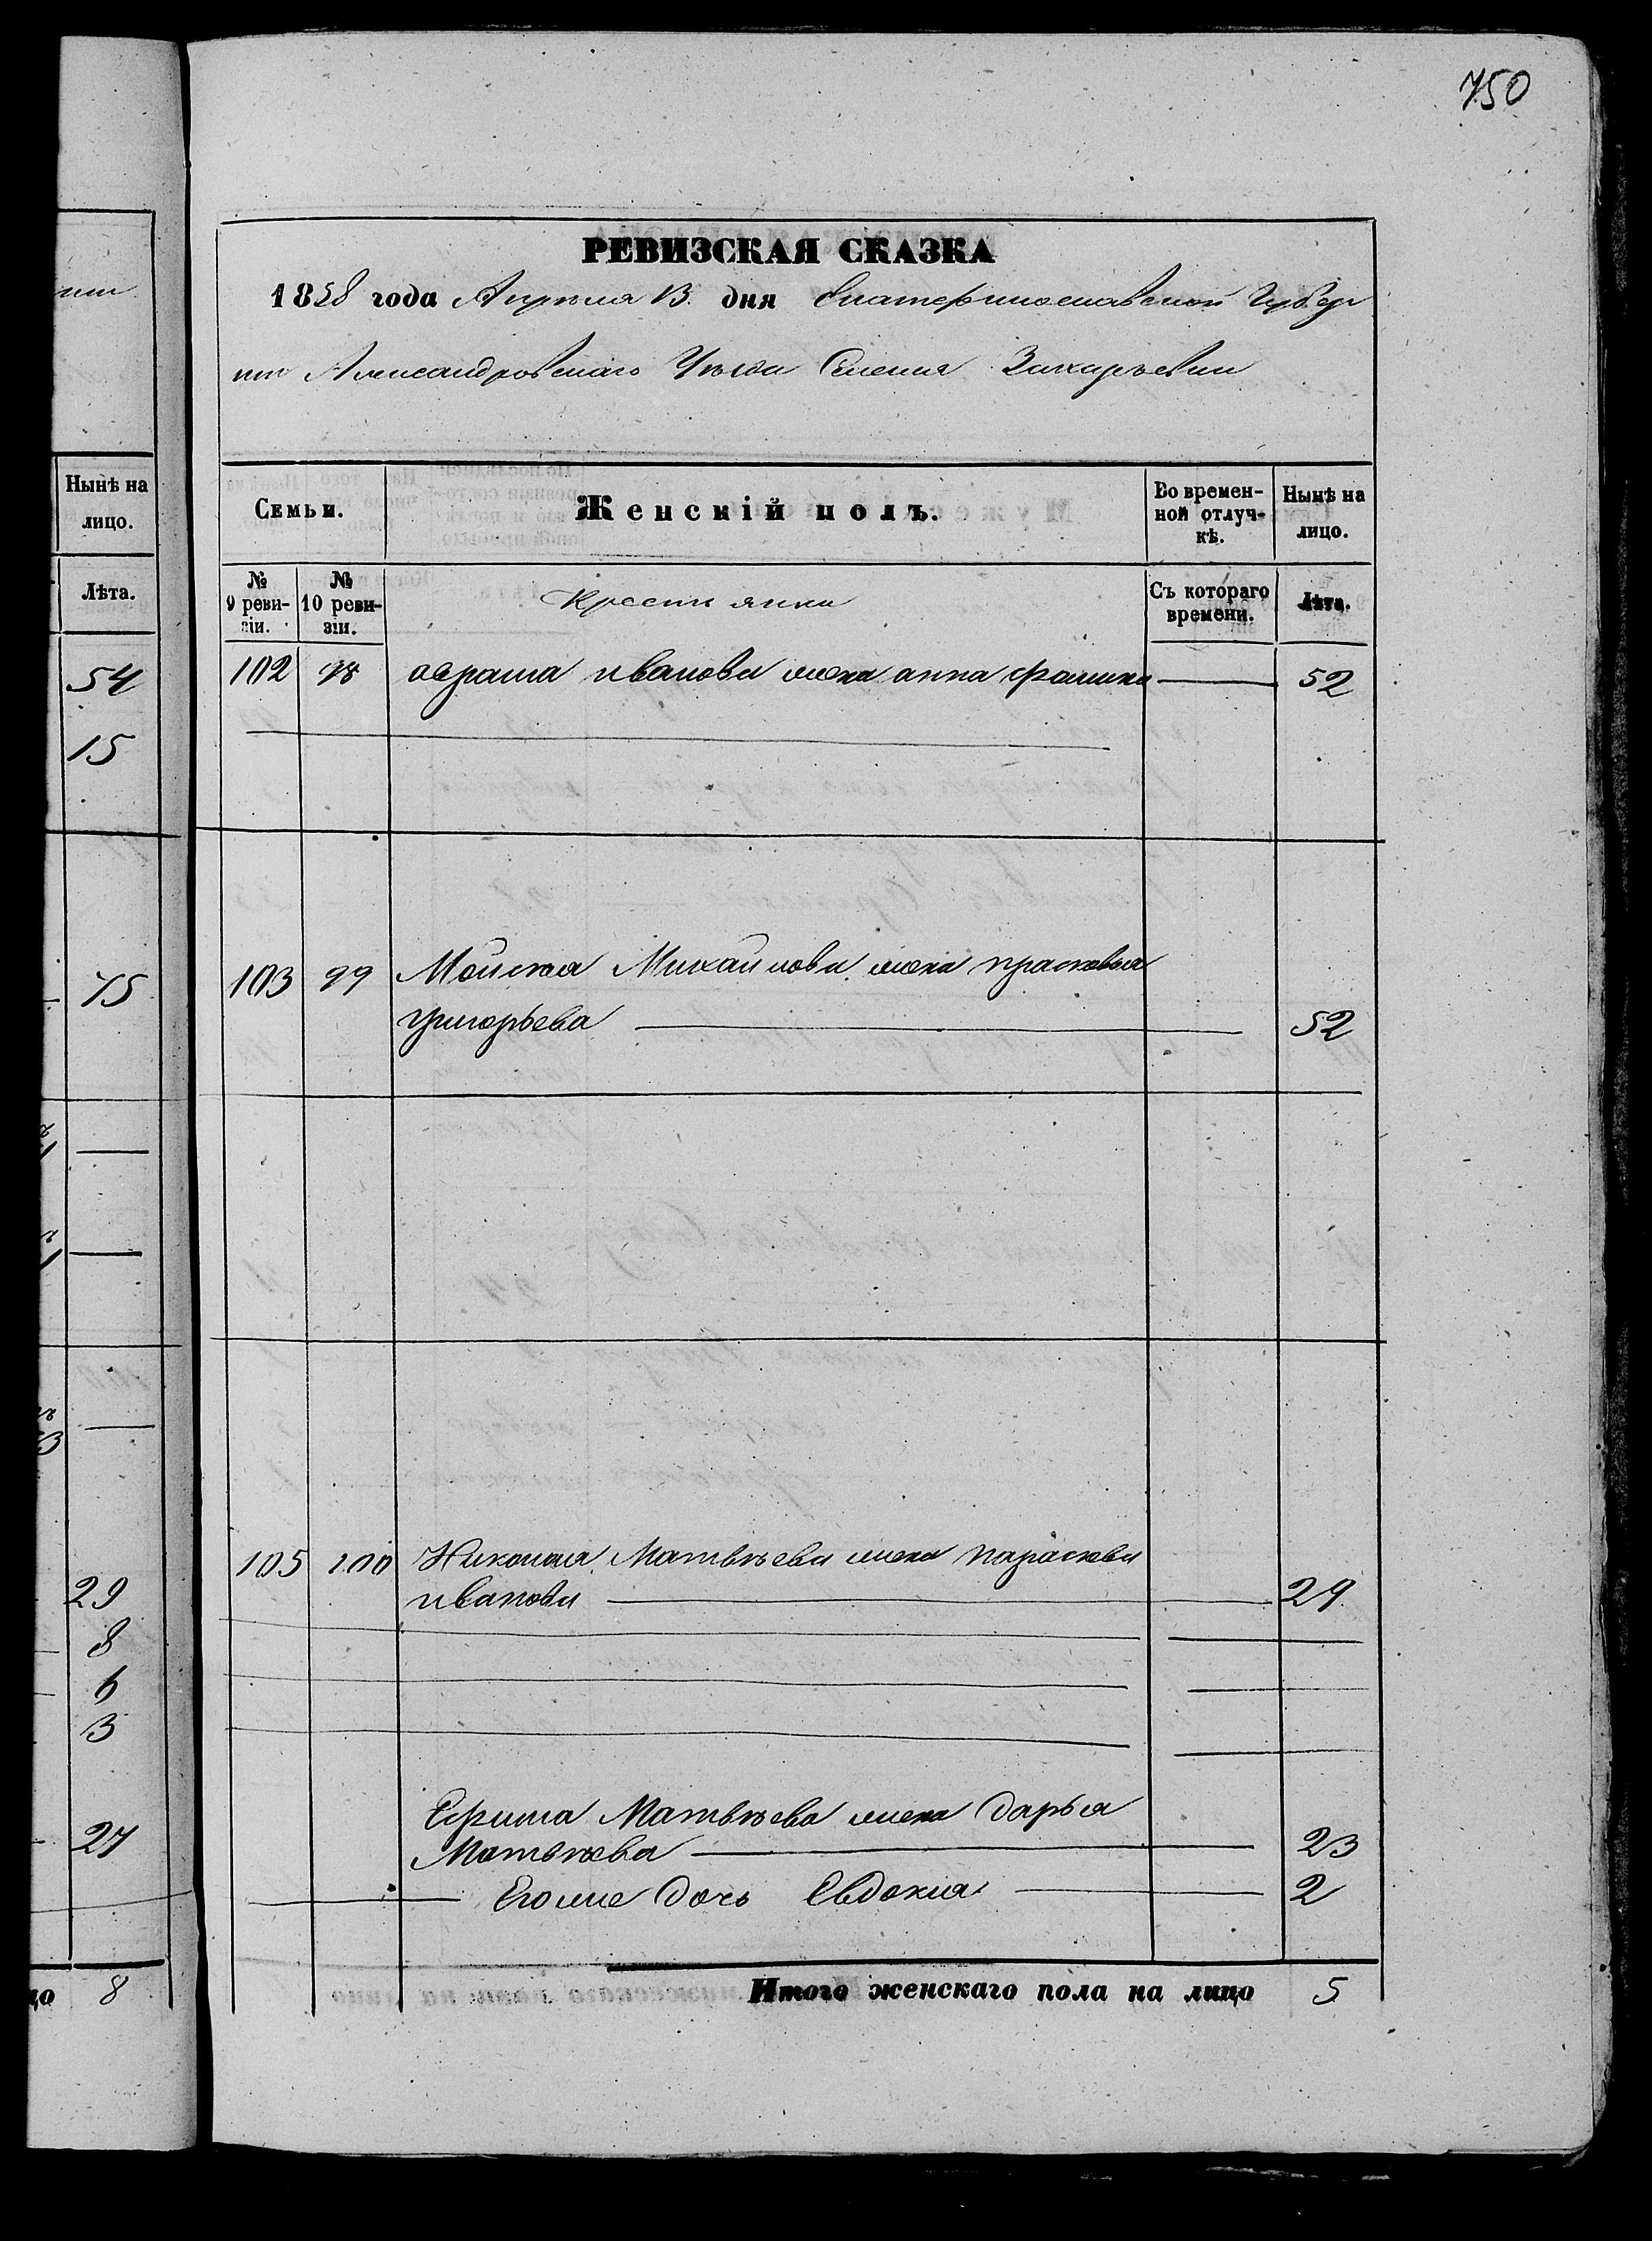 750
РЕВИЗСКАЯ СКАЗКА
1858 года Апреля 13 дня Екатеринославской Губер
нии Александровскаго Уѣзда Селения Захарьевки
Нынѣ на
лицо.
Лѣта.
54
15
75
29
8
6
3
27
8
Семьи.
Женскій полъ.
Во времен-
ной отлуч-
кѣ.
Нынѣ на
лицо.
№
9 реви-
зіи.
№
10 реви-
зіи.
Крестьянки
Съ котораго
времени.
Лѣта.
102 98 аврама иванова жена анна фомина 52
103 99 Мойсея Михайлова жена прасковья
григорьева 52
105 100 Николая Матвѣева жена параскева
иванова 29
Ефима Матвѣева жена Дарья
Матвѣева 23
Егоже дочь Евдокия 2
Итого женскаго пола на лицо 5